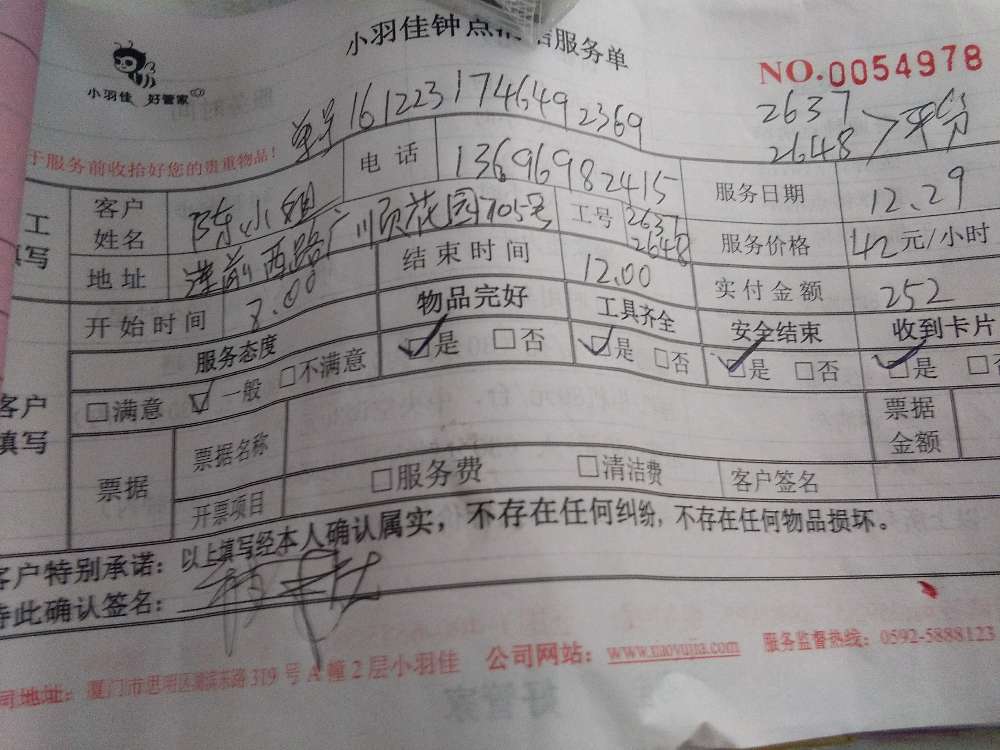 小羽佳钟点 洁服务单
小羽佳 好管家
NO.0054978
单号 161223174649 2369
2637
2648 > 平分
于服务前收拾好您的贵重物品!
工 客户姓名 陈小姐 电话 13696982415 服务日期 12.29
填写 地址 莲前西路广顺花园705号 工号 2637 2648 服务价格 42元/小时
开始时间 8.00 结束时间 12.00 实付金额 252
服务态度 物品完好 工具齐全 安全结束 收到卡片
客户 □满意 ☑一般 □不满意 ☑是 □否 ☑是 □否 ☑是 □否 ☑是
填写 票据 票据名称 票据金额
开票项目 □服务费 □清洁费 客户签名
客户特别承诺:以上填写经本人确认属实,不存在任何纠纷,不存在任何物品损坏。
特此确认签名:
司地址:厦门市思明区湖滨东路319号A幢2层小羽佳 公司网站:www.xiaoyujia.com 服务监督热线:0592-5888123
好管家